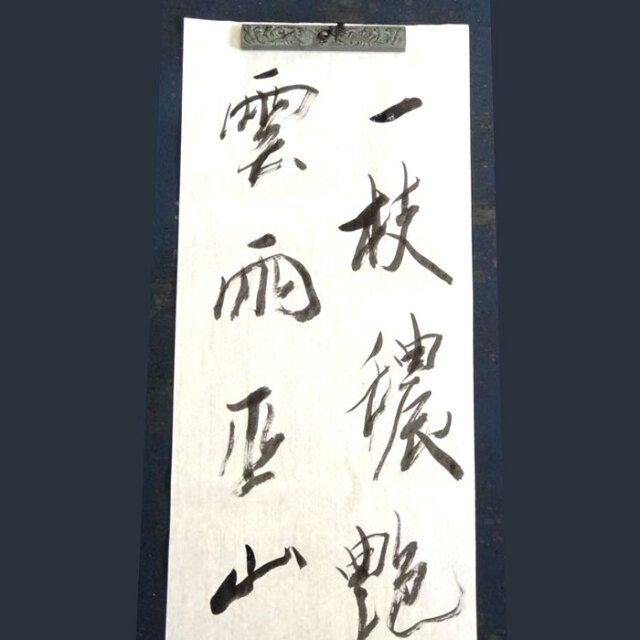 一枝穠艶
雲雨巫山